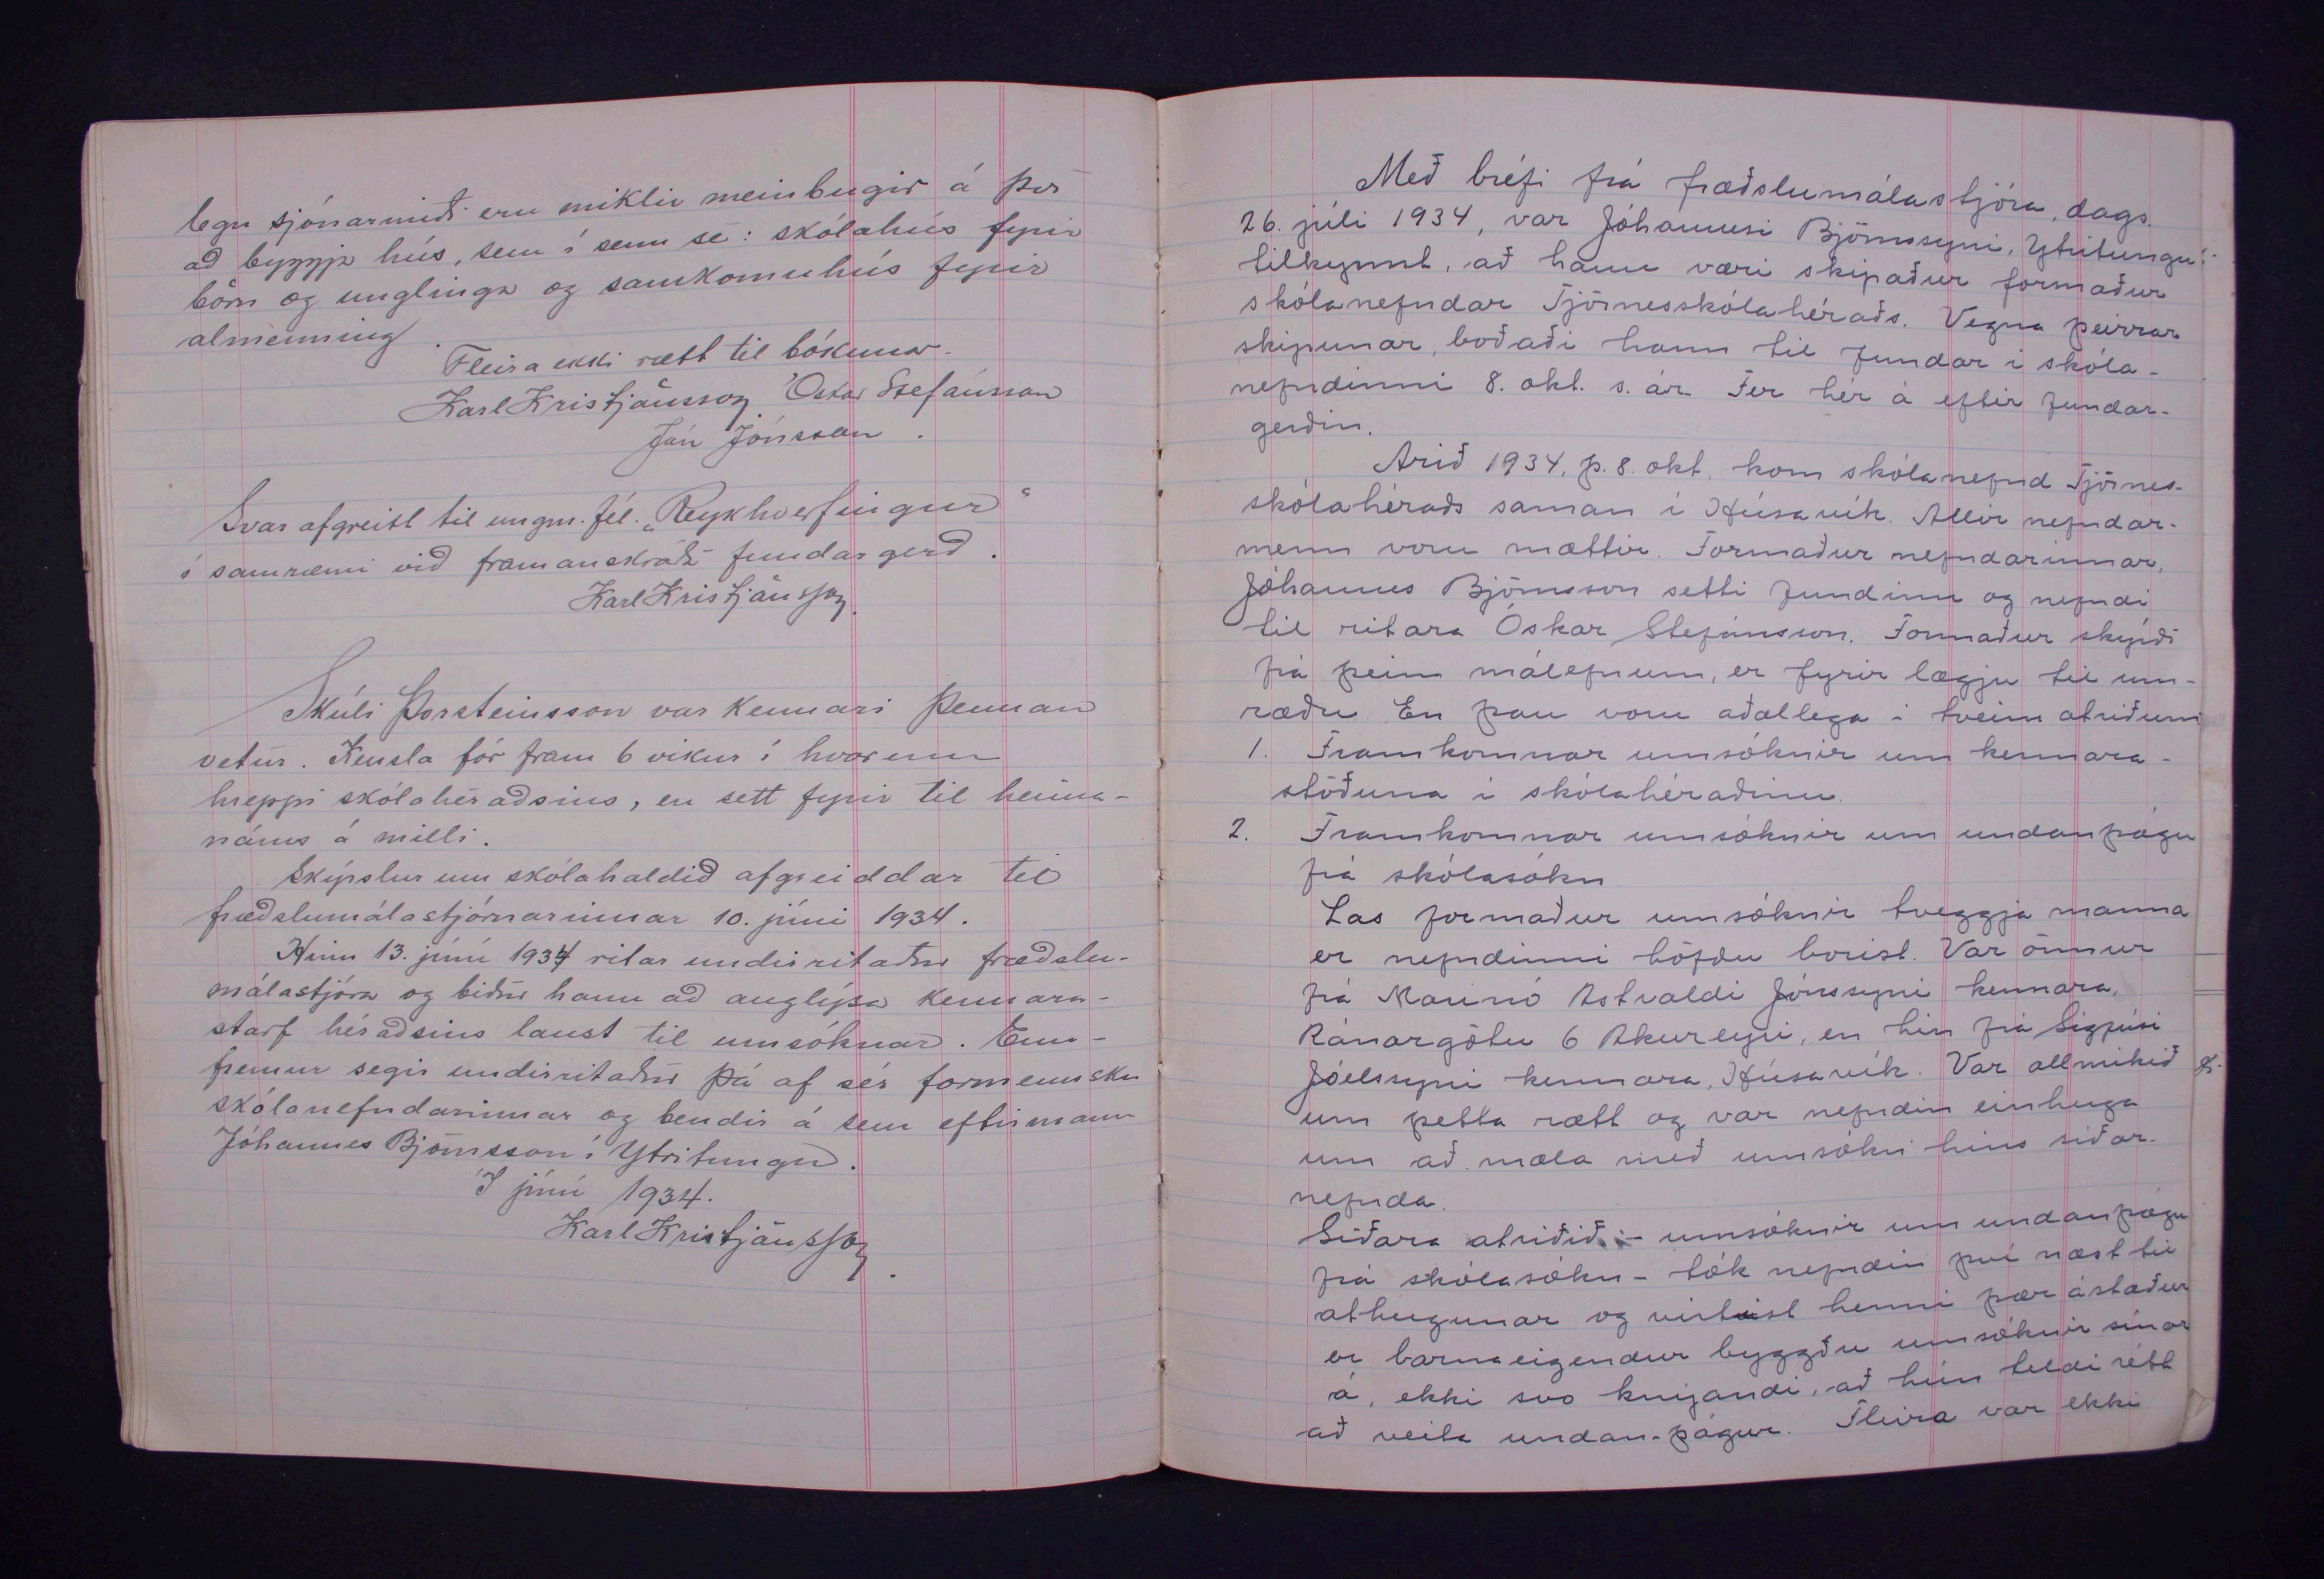 legu sjónarmiði eru miklir meinbugir á því
að byggja hús, sem í senn sé: skólahús fyrir
börn og unglinga og samkomuhús fyrir
almenning.
Fleira ekki rætt til bókunar.
Karl Kristjánsson Óskar Stefánsson
Jón Jónsson.
Svar afgreitt til ungm. fél. „Reykhverfingur“
í samræmi við framanskráða fundargerð.
Karl Kristjánsson.
Skúli Þorsteinsson var kennari þennan
vetur. Kensla fór fram 6 vikur í hvorum
hreppi skólahéraðsins, en sett fyrir til heima-
náms á milli.
Skýrslur um skólahaldið afgreiddar til
fræðslumálastjórnarinnar 10. júní 1934.
Hinn 13. júní 1934 ritar undirritaður fræðslu-
málastjóra og biður hann að auglýsa kennara-
starf héraðsins laust til umsóknar. Enn-
fremur segir undirritaður þá af sér formennsku
skólanefndarinnar og bendir á sem eftirmann
Jóhannes Björnsson í Ytritungu.
Í júní 1934.
Karl Kristjánsson.
Með bréfi frá fræðslumálastjóra, dags.
26. júli 1934, var Jóhannesi Björnssyni, Ytritungu.
tilkynnt, að hann væri skipaður formaður
skólanefndar Tjörnesskólahéraðs. Vegna þeirrar
skipunar, boðaði hann til fundar í skóla-
nefndinni 8. okt. s. ár. Fer hér á eftir fundar-
gerðin.
Árið 1934, þ. 8. okt. kom skólanefnd Tjörnes-
skólahéraðs saman í Húsavík. Allir nefndar-
menn voru mættir. Formaður nefndarinnar,
Jóhannes Björnsson setti fundinn og nefndi
til ritara Óskar Stefánsson. Formaður skýrði
frá þeim málefnum, er fyrir lægju til um-
ræðu. En þau voru aðallega í tveim atriðum
1. Framkomnar umsóknir um kennara-
stöðuna í skólahéraðinu.
2. Framkomnar umsóknir um undanþágu
frá skólasókn
Las formaður umsóknir tveggja manna
er nefndinni höfðu borist. Var önnur
frá Marinó Astvaldi Jónssyni kennara,
Ránargötu 6 Akureyri, en hin frá Sigfúsi
Jóelssyni kennara, Húsavík. Var allmikið
um þetta rætt og var nefndin einhuga
um að mæla með umsókn hins síðar-
nefnda.
Síðara atriðið :- umsóknir um undanþágu
frá skólasókn - tók nefndin því næst til
athugunar og virtist henni þær ástæður
er barnaeigendur byggðu umsóknir sínar
á, ekki svo knýjandi, að hún teldi rétt
að veita undan-þágur. Fleira var ekki